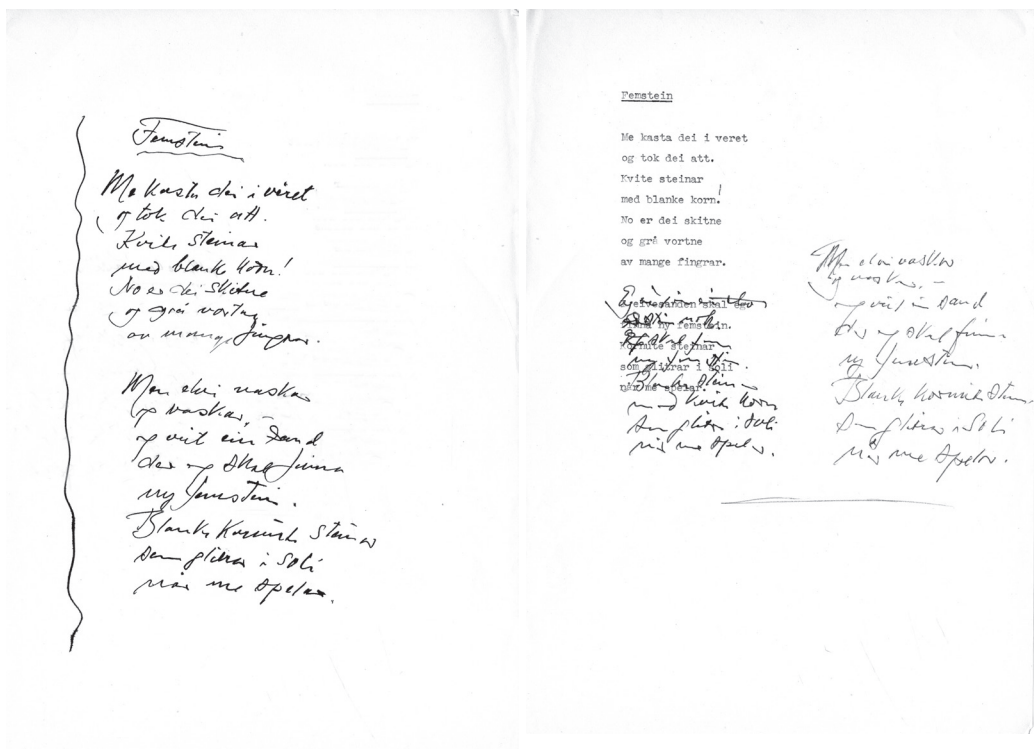 Femstein
Me kasta dei i veret
og tok dei att.
Kvite steinar
med blanke korn!
No er dei skitne
og grå vortne
av mange fingrar.
Men elvi vaskar
og vaskar, –
og veit ein sand
der eg skal finna
ny femstein.
Blanke kornute steinar
som glitrar i soli
når me spelar.
Femstein
Me kasta dei i veret
og tok dei att.
Kvite steinar
med blanke korn!
No er dei skitne
og grå vortne
av mange fingrar.
elvesanden skal eg
finna ny femstein.
Kornute steinar
som glitrar i soli
når me spelar.
ny femstein
Blanke steinar
med kvite korn
som glitrar i soli
når me spelar.
Men elvi vaskar
og vaskar, –
og veit ein sand
der eg skal finna
ny femstein.
Blanke kornute steinar
som glitrar i soli
når me spelar.